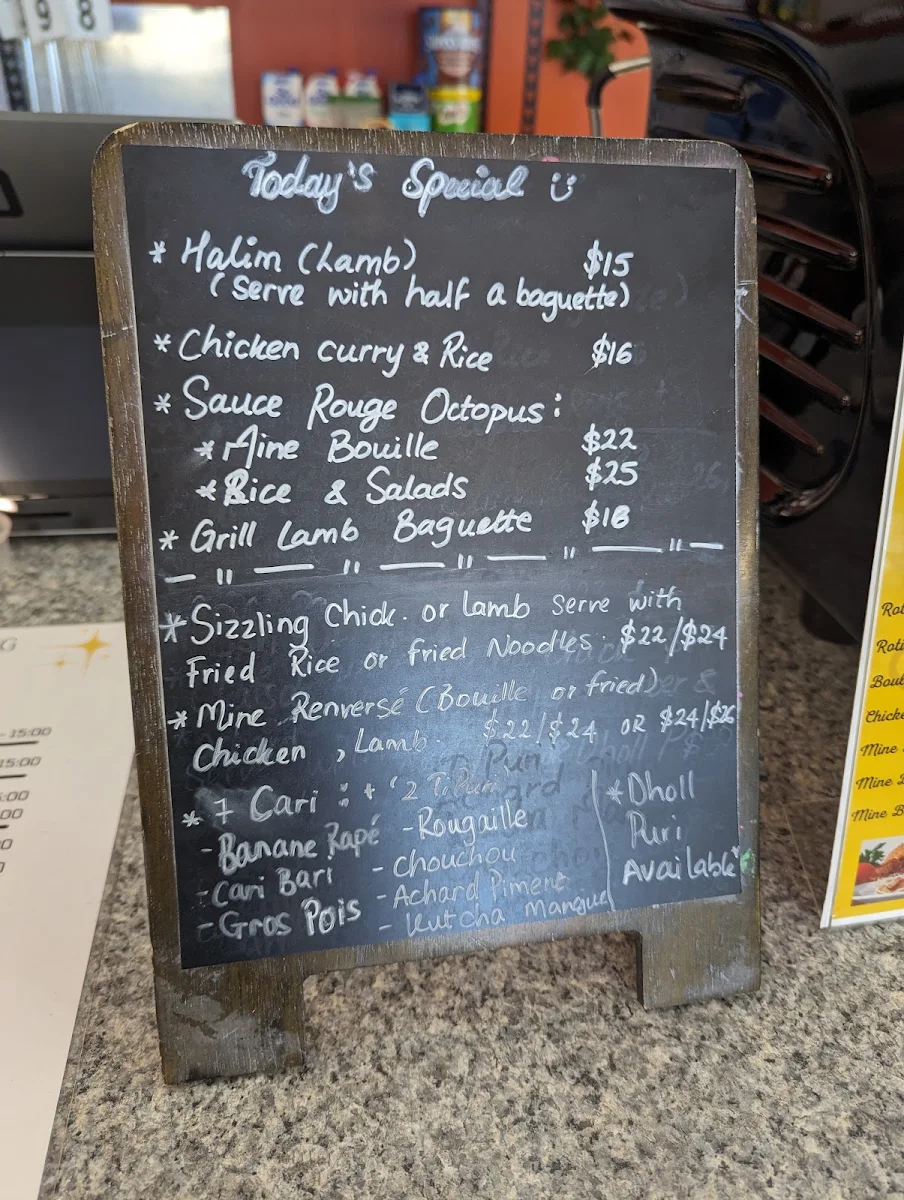 9 8
Today's Special
* Halim (Lamb) $15
(Serve with half a baguette)
* Chicken curry & Rice $16
* Sauce Rouge Octopus:
* Mine Bouille $22
* Rice & Salads $25
* Grill Lamb Baguette $18
* Sizzling Chick. or lamb serve with
Fried Rice or fried Noodles. $22/$24
* Mine Renversé (Bouille or fried)
Chicken, Lamb $22/$24 OR $24/$26
* 7 Cari : + 2 Ti Puri
- Banane Rapé
- Cari Bari
- Gros Pois
- Rougaille
- Chouchou
- Achard Piment
- Kutcha Mangue
* Dholl
Puri
Available
G
- 15:00
15:00
:00
Roti
Chicke
Mine
Mine
Mine B